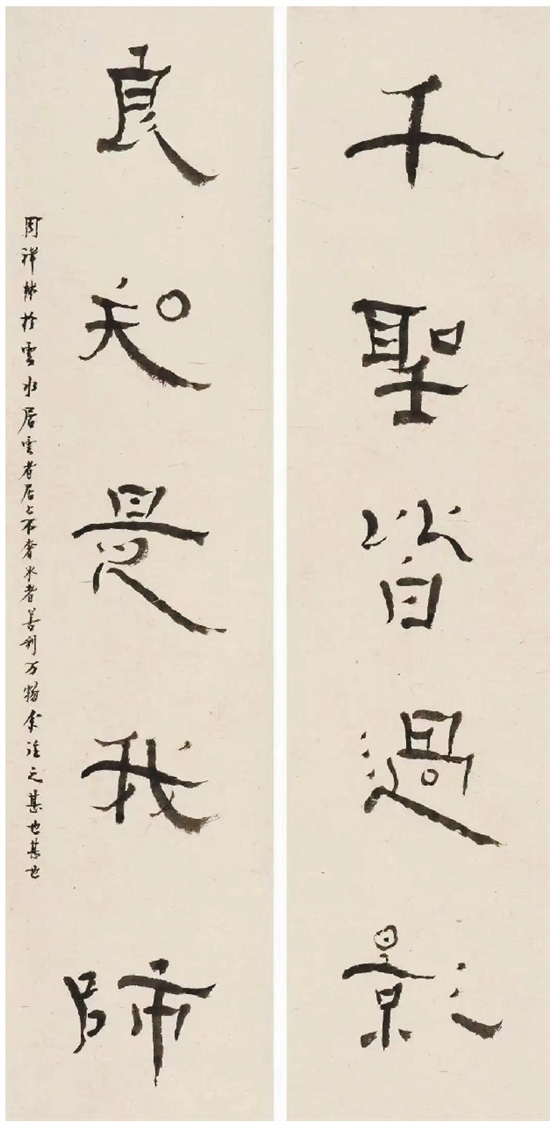 千聖皆過影
良知是我師
周祥林於雲水居云者居上不奢水者善利万物余之甚也甚也